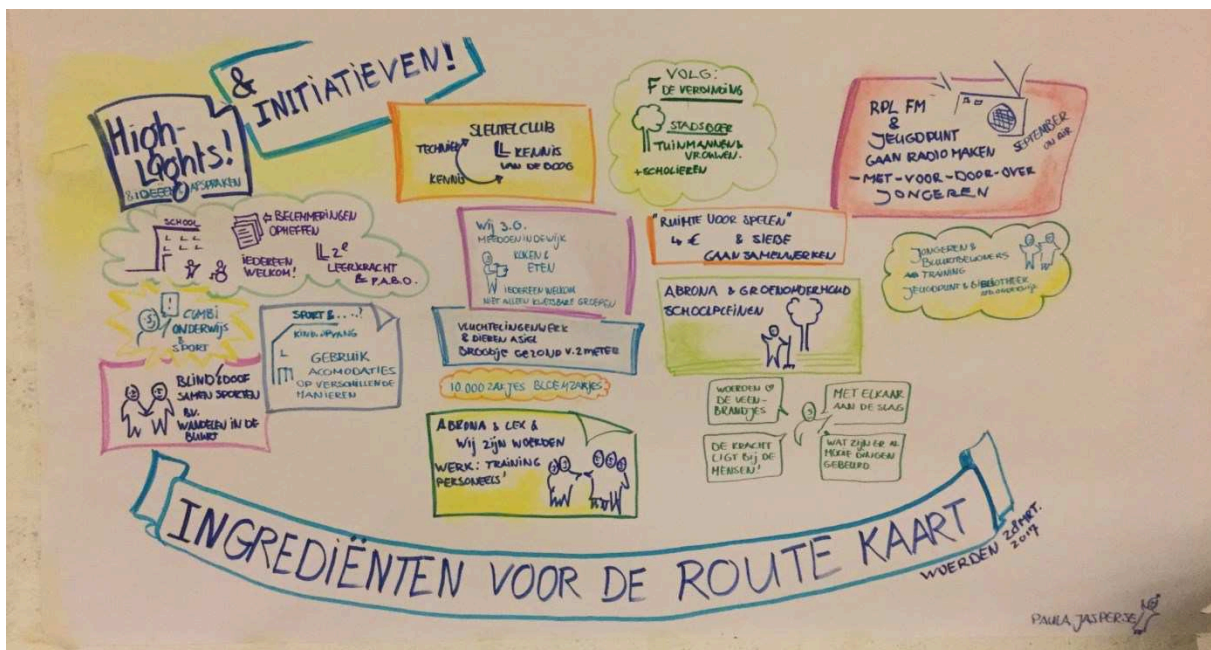 High-
Lights!
& IDEEËN & AFSPRAKEN
& INITIATIEVEN!
SLEUTELCLUB
TECHNIEK
KENNIS
KENNIS
VAN DE BOOG
VOLG:
F DE VERBINDING
STADSBOER
TUINMANNEN &
VROUWEN.
+ SCHOLIEREN
RPL FM
&
JEUGDPUNT
GAAN RADIO MAKEN
- MET-VOOR-DOOR-OVER
JONGEREN
SEPTEMBER
ON AIR
SCHOOL
BELEMMERINGEN
OPHEFFEN
IEDEREEN
WELKOM!
2e
LEERKRACHT
& P.A.B.O.
Wij 3.0.
MEEDOEN IN DE WIJK
KOKEN &
ETEN
IEDEREEN WELKOM
NIET ALLEEN KWETSBARE GROEPEN
"RUIMTE VOOR SPELEN"
4 € & SIEBE
GAAN SAMENWERKEN
JONGEREN &
BUURTBEWONERS
TRAINING
JEUGDPUNT & BIBLIOTHEEK
COMBI
ONDERWIJS
&
SPORT
SPORT & ....?
KINDOPVANG
GEBRUIK
ACOMODATIES
OP VERSCHILLENDE
MANIEREN
VLUCHTELINGENWERK
& DIEREN ASIEL
BROODJE GEZOND V. 2 METER
ABRONA & GROENONDERHOUD
SCHOOLPLEINEN
BLIND & DOOF
SAMEN SPORTEN
B.V.
WANDELEN IN DE
BUURT
10.000 ZAKJES BLOEMZAKJES
ABRONA & LEX &
Wij ZIJN WOERDEN
WERK: TRAINING
PERSONEELS'
WOERDEN
DE VEEN-
BRANDTJES
MET ELKAAR
AAN DE SLAG
DE KRACHT
LIGT BIJ DE
MENSEN!
WAT ZIJN ER AL
MOOIE DINGEN
GEBEURD
INGREDIËNTEN VOOR DE ROUTE KAART
WOERDEN 28 MRT.
2017
PAULA JASPERSE